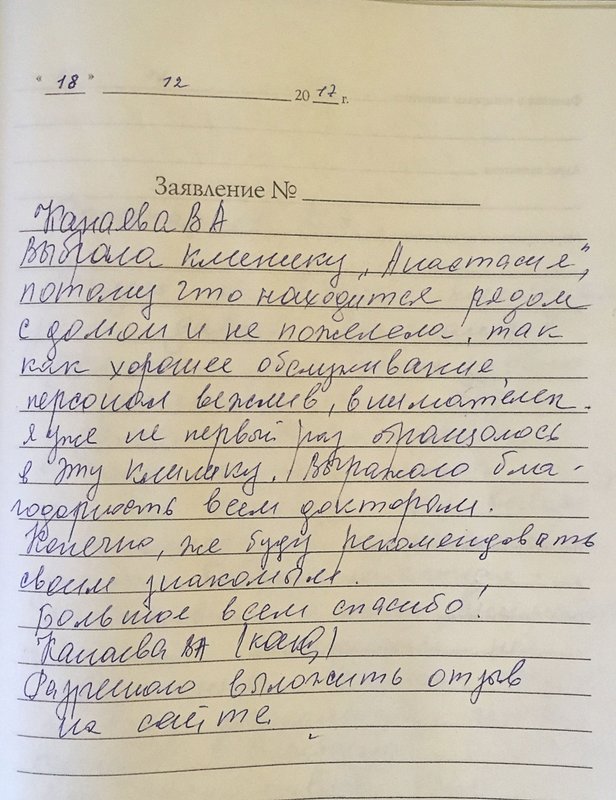 "18" 12 2017 г.
Заявление №
Канаева В А
Выбрала клинику „Анастасия",
потому что находится рядом
с домом и не пожелела, так
как хорошее обслуживание,
персонал вежлив, внимателен.
Я уже не первый раз обращалось
в эту клинику. Выражаю бла-
годарность всем докторам.
Конечно, же буду рекомендовать
своим знакомым.
Большое всем спасибо!
Канаева ВА
Разрешаю выложить отзыв
на сайте